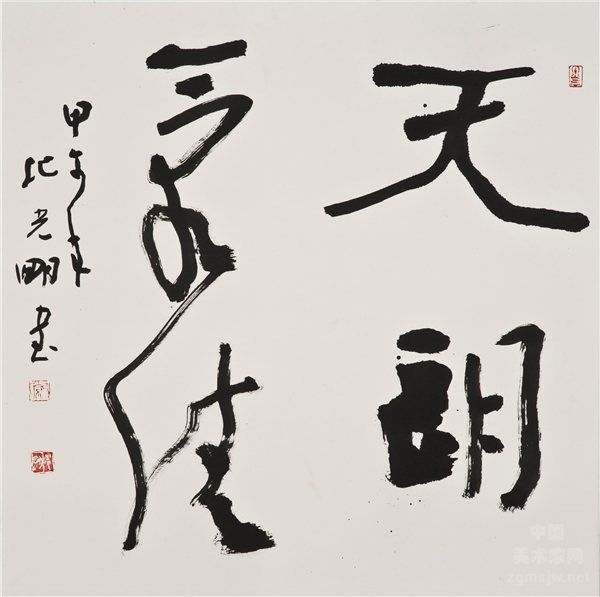 天朗
氣清
甲午年
纪光明書
中国
美术家网
zgmsjw.net